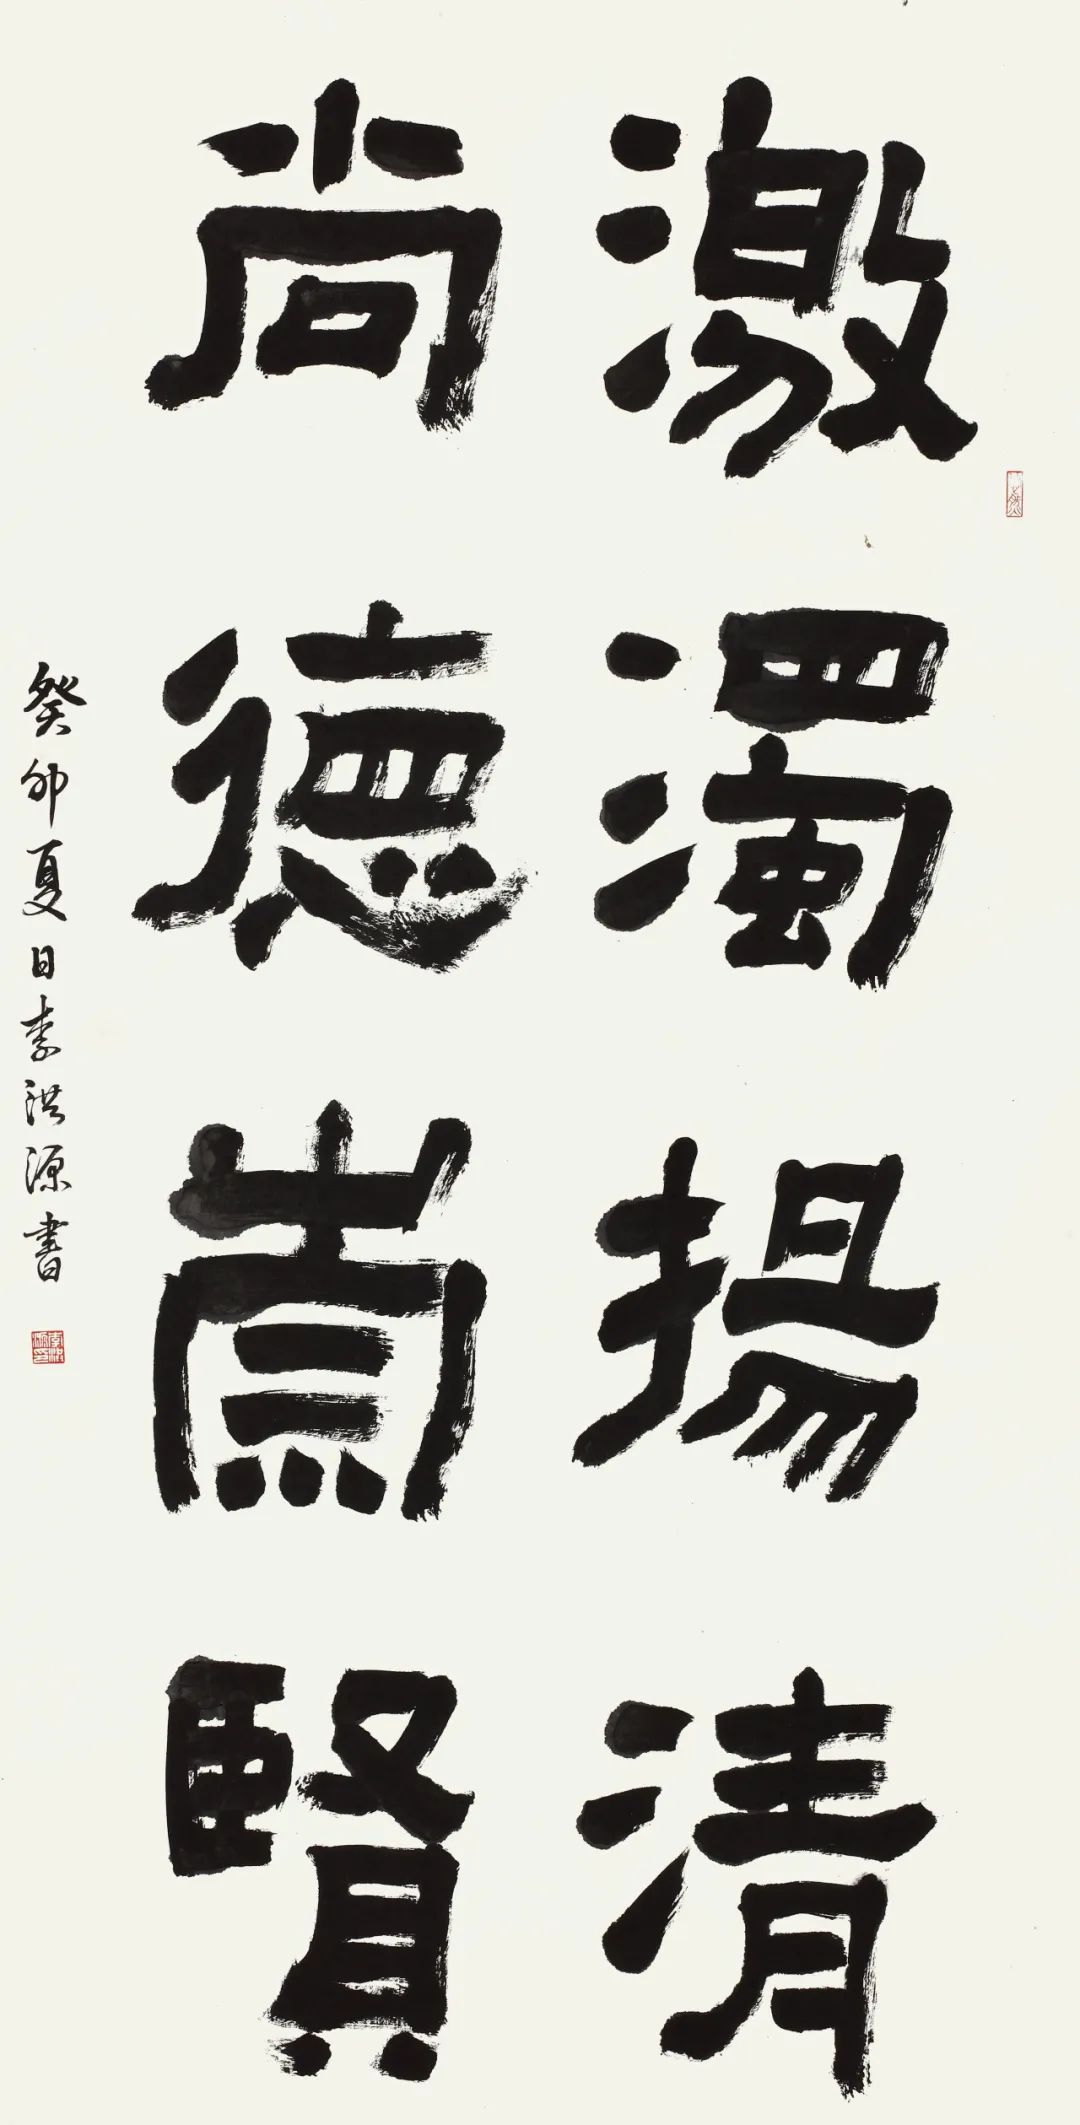 激濁揚清
尚德崇賢
癸卯夏日李洪源書